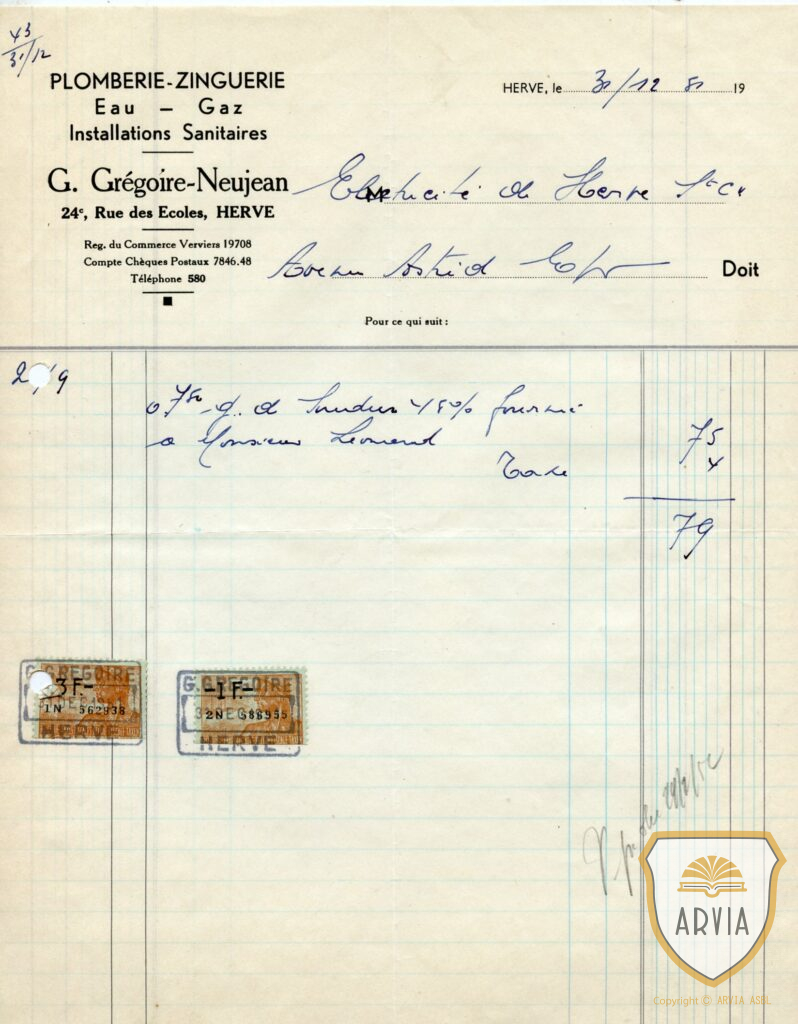 43
31/12
PLOMBERIE-ZINGUERIE
Eau — Gaz
Installations Sanitaires
G. Grégoire-Neujean
24c, Rue des Ecoles, HERVE
Reg. du Commerce Verviers 19708
Compte Chèques Postaux 7846.48
Téléphone 580
HERVE, le 31/12 51 19
M Electricité de Herve
Avenue Astrid Doit
Pour ce qui suit :
2/9
0,750 g. de Soudure 45% fournie
a Monsieur Léonard 75
Taxe 4
79
G. GREGOIRE
3 F.-
31 DEC
1N 562938
HERVE
G. GREGOIRE
-1 F.-
31 DEC
2N 686955
HERVE
ARVIA
Copyright © ARVIA ASBL